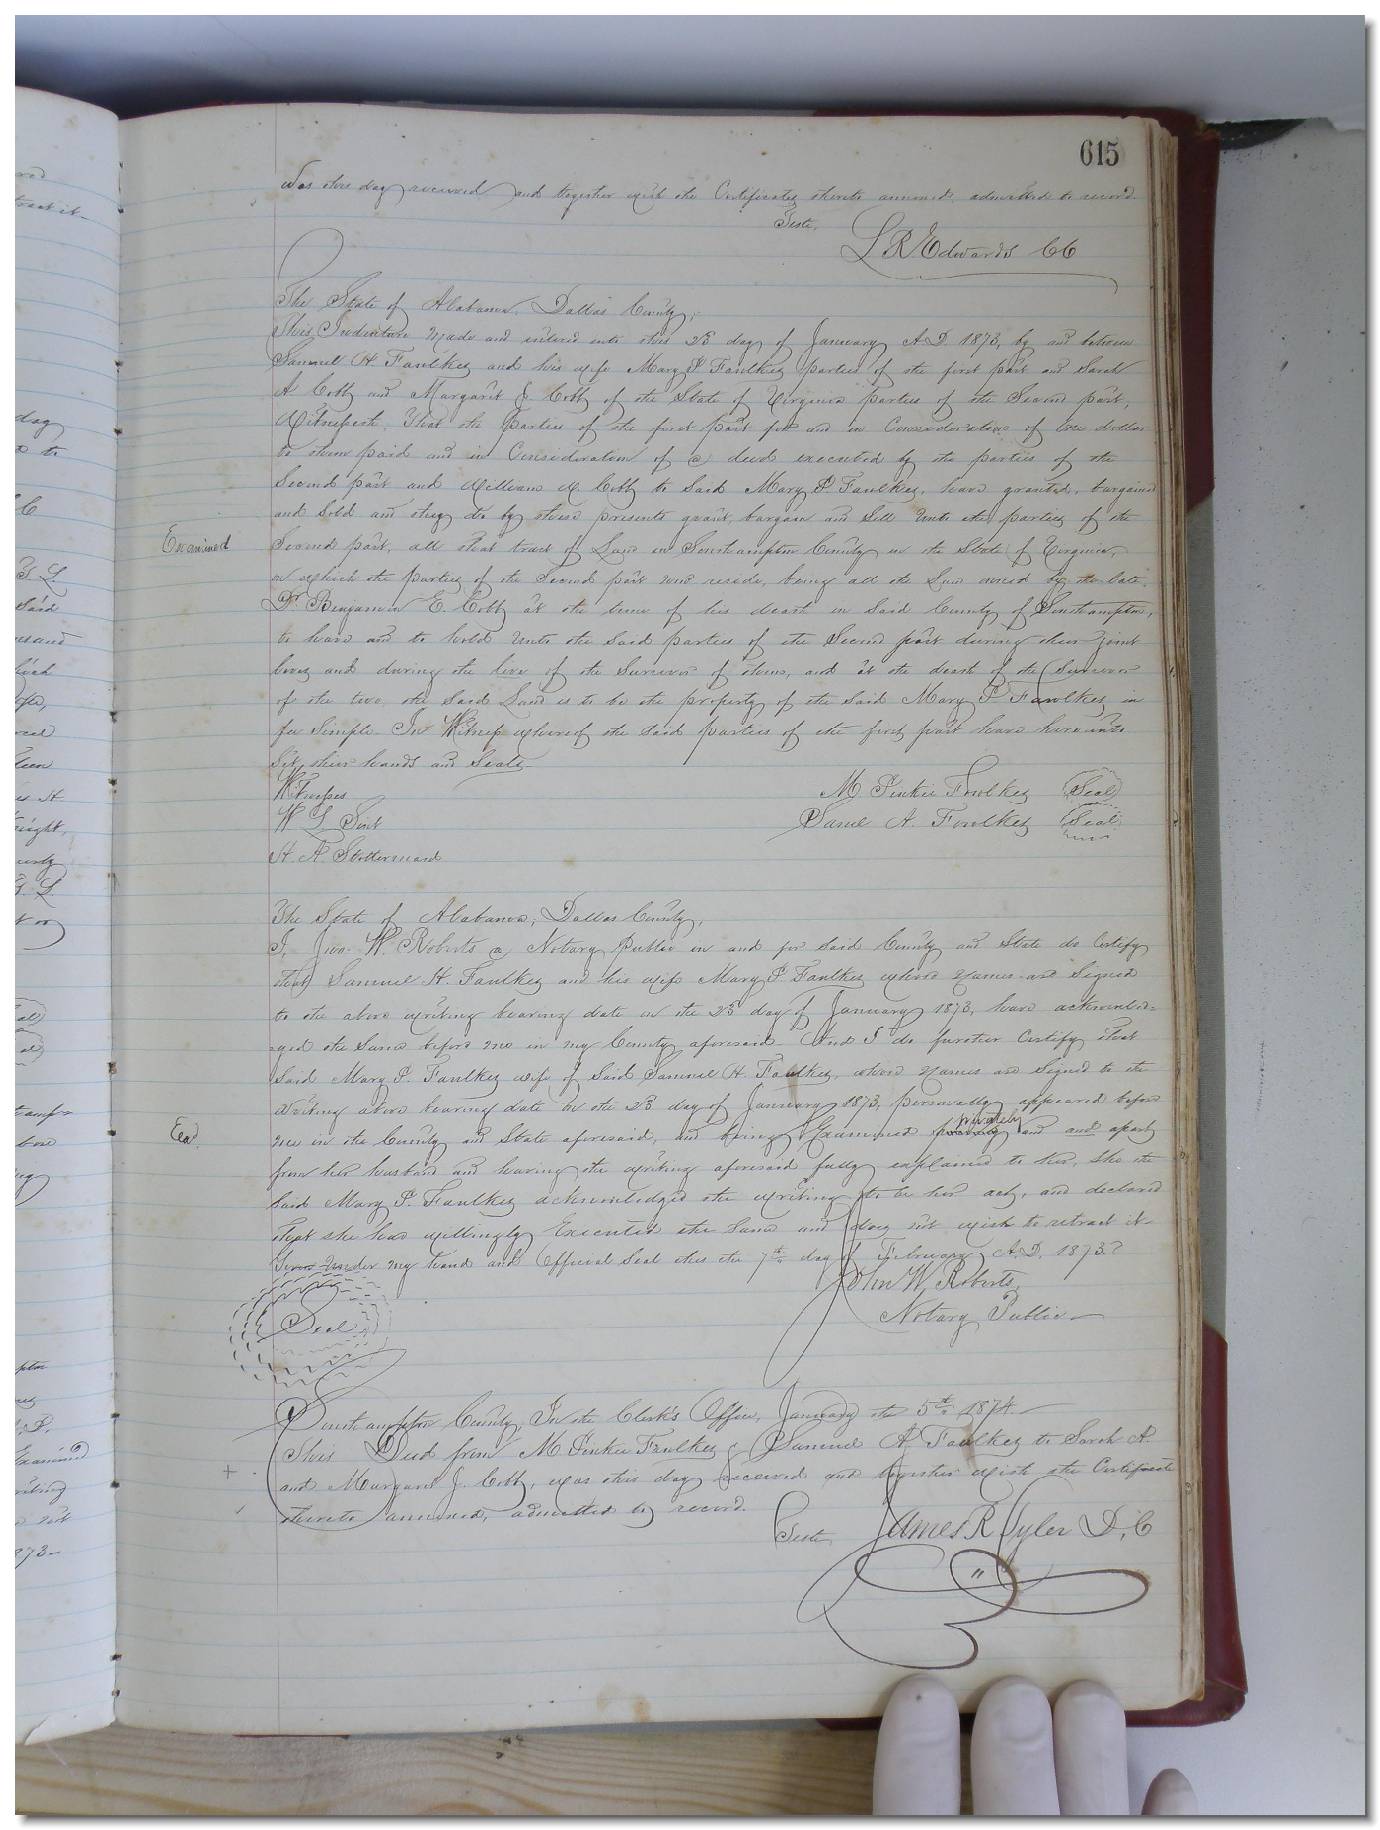 615
was this day received and together with the Certificates thereto annexed, admitted to record.
Teste,
L R Edwards CC
The State of Alabama, Dallas County,
This Indenture made and entered into this 23 day of January A.D. 1873, by and between
Samuel H. Faulkes and his wife Mary P. Faulkes parties of the first part and Sarah
A Cobb and Margaret J. Cobb of the State of Virginia parties of the Second part,
Witnesseth, That the parties of the first part for and in Consideration of one dollar
to them paid and in Consideration of a deed executed by the parties of the
Second part and William Cobb to Said Mary P. Faulkes, have granted, bargained
and Sold and they do by these presents grant, bargain and Sell unto the parties of the
Examined
Second part, all that tract of Land in Southampton County in the State of Virginia,
on which the parties of the Second part now reside, being all the Land owned by the late
Dr Benjamin E. Cobb at the time of his death in Said County of Southampton,
to have and to hold unto the Said parties of the Second part during their joint
lives and during the live of the Survivor of them, and at the death of the Survivor
of the two the Said Land is to be the property of the Said Mary P. Faulkes in
fee Simple. In Witness whereof the said parties of the first part have hereunto
Set their hands and Seals
Witnesses
M. Pinkie Faulkes Seal
W L
Saml A. Faulkes Seal
H. A. Stollenwerck
The State of Alabama, Dallas County,
I, Jno. W. Roberts a Notary Public in and for Said County and State do Certify
that Samuel H. Faulkes and his wife Mary P. Faulkes whose names are Signed
to the above writing bearing date on the 23 day of January 1873, have acknowled-
-ged the Same before me in my County aforesaid. And I do further Certify that
Said Mary P. Faulkes wife of Said Samuel H. Faulkes, whose names are Signed to the
writing above bearing date on the 23 day of January 1873, personally appeared before
privately
Ex.d
me in the County and State aforesaid, and being Examined and and apart
from her husband and having the writing aforesaid fully explained to her, She the
Said Mary P. Faulkes acknowledged the writing to be her act, and declared
that she had willingly Executed the Same and does not wish to retract it-
Given under my hand and Official Seal this the 7th day of February A.D. 1873.
John W. Roberts,
Seal
Notary Public
Southampton County, In the Clerk's Office, January the 5th 1874.
This Deed from M. Pinkie Faulkes & Samuel A. Faulkes to Sarah A.
and Margaret J. Cobb, was this day received and together with the Certificate
thereto annexed, admitted to record.
Teste,
James R Tyler D.C